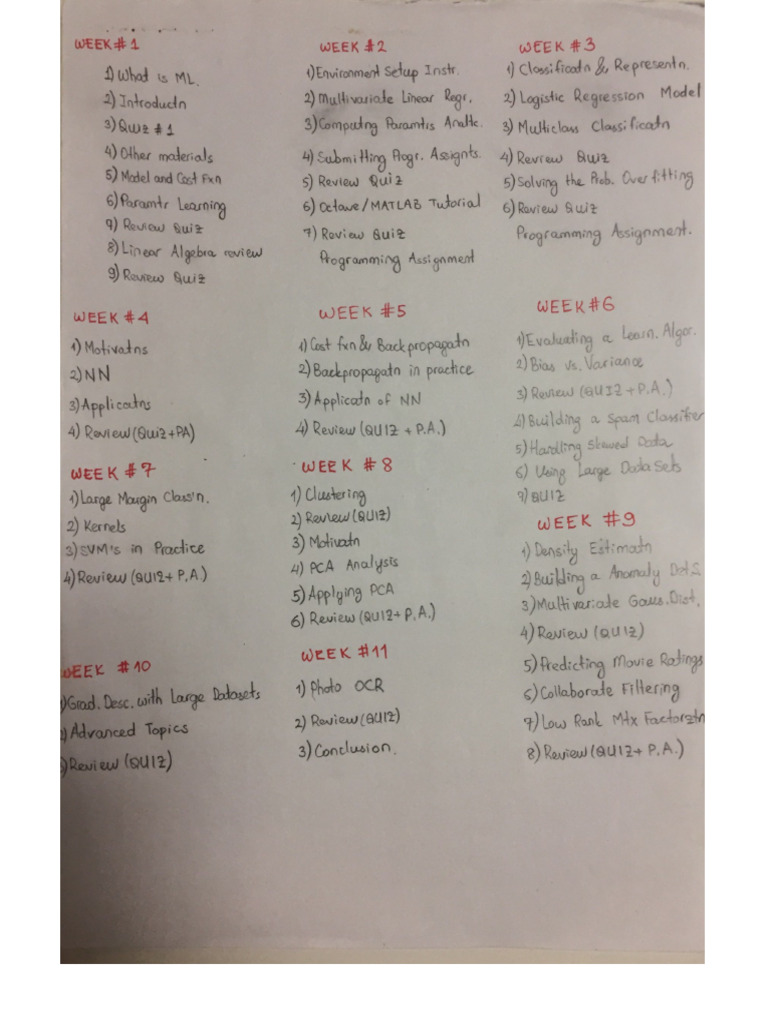 WEEK # 1
1) What is ML.
2) Introductn
3) Quiz # 1
4) Other materials
5) Model and Cost fxn
6) Paramtr Learning
7) Review Quiz
8) Linear Algebra review
9) Review Quiz
WEEK # 2
1) Environment Setup Instr.
2) Multivariate Linear Regr.
3) Computng Paramtrs Analtc.
4) Submitting Progr. Assignts.
5) Review Quiz
6) Octave/MATLAB Tutorial
7) Review Quiz
Programming Assignment
WEEK # 3
1) Classificatn & Representn.
2) Logistic Regression Model
3) Multiclass Classificatn
4) Review Quiz
5) Solving the Prob. Overfitting
6) Review Quiz
Programming Assignment.
WEEK # 4
1) Motivatns
2) NN
3) Applicatns
4) Review (Quiz+PA)
WEEK #5
1) Cost fxn & Backpropagatn
2) Backpropagatn in practice
3) Applicatn of NN
4) Review (QUIZ + P.A.)
WEEK #6
1) Evaluating a Learn. Algor.
2) Bias vs. Variance
3) Review (QUIZ + P.A.)
4) Building a Spam Classifier
5) Handling Skewed Data
6) Using Large DataSets
7) QUIZ
WEEK #7
1) Large Margin Class'n.
2) Kernels
3) SVM's in Practice
4) Review (QUIZ+ P.A.)
WEEK # 8
1) Clustering
2) Review (QUIZ)
3) Motivatn
4) PCA Analysis
5) Applying PCA
6) Review (QUIZ+ P.A.)
WEEK #9
1) Density Estimatn
2) Building a Anomaly Det.S
3) Multivariate Gauss. Dist.
4) Review (QUIZ)
5) Predicting Movie Ratings
6) Collaborate Filtering
7) Low Rank Mtx Factorztn
8) Review (QUIZ+ P.A.)
WEEK #10
) Grad. Desc. with Large Datasets
) Advanced Topics
) Review (QUIZ)
WEEK #11
1) Photo OCR
2) Review (QUIZ)
3) Conclusion.